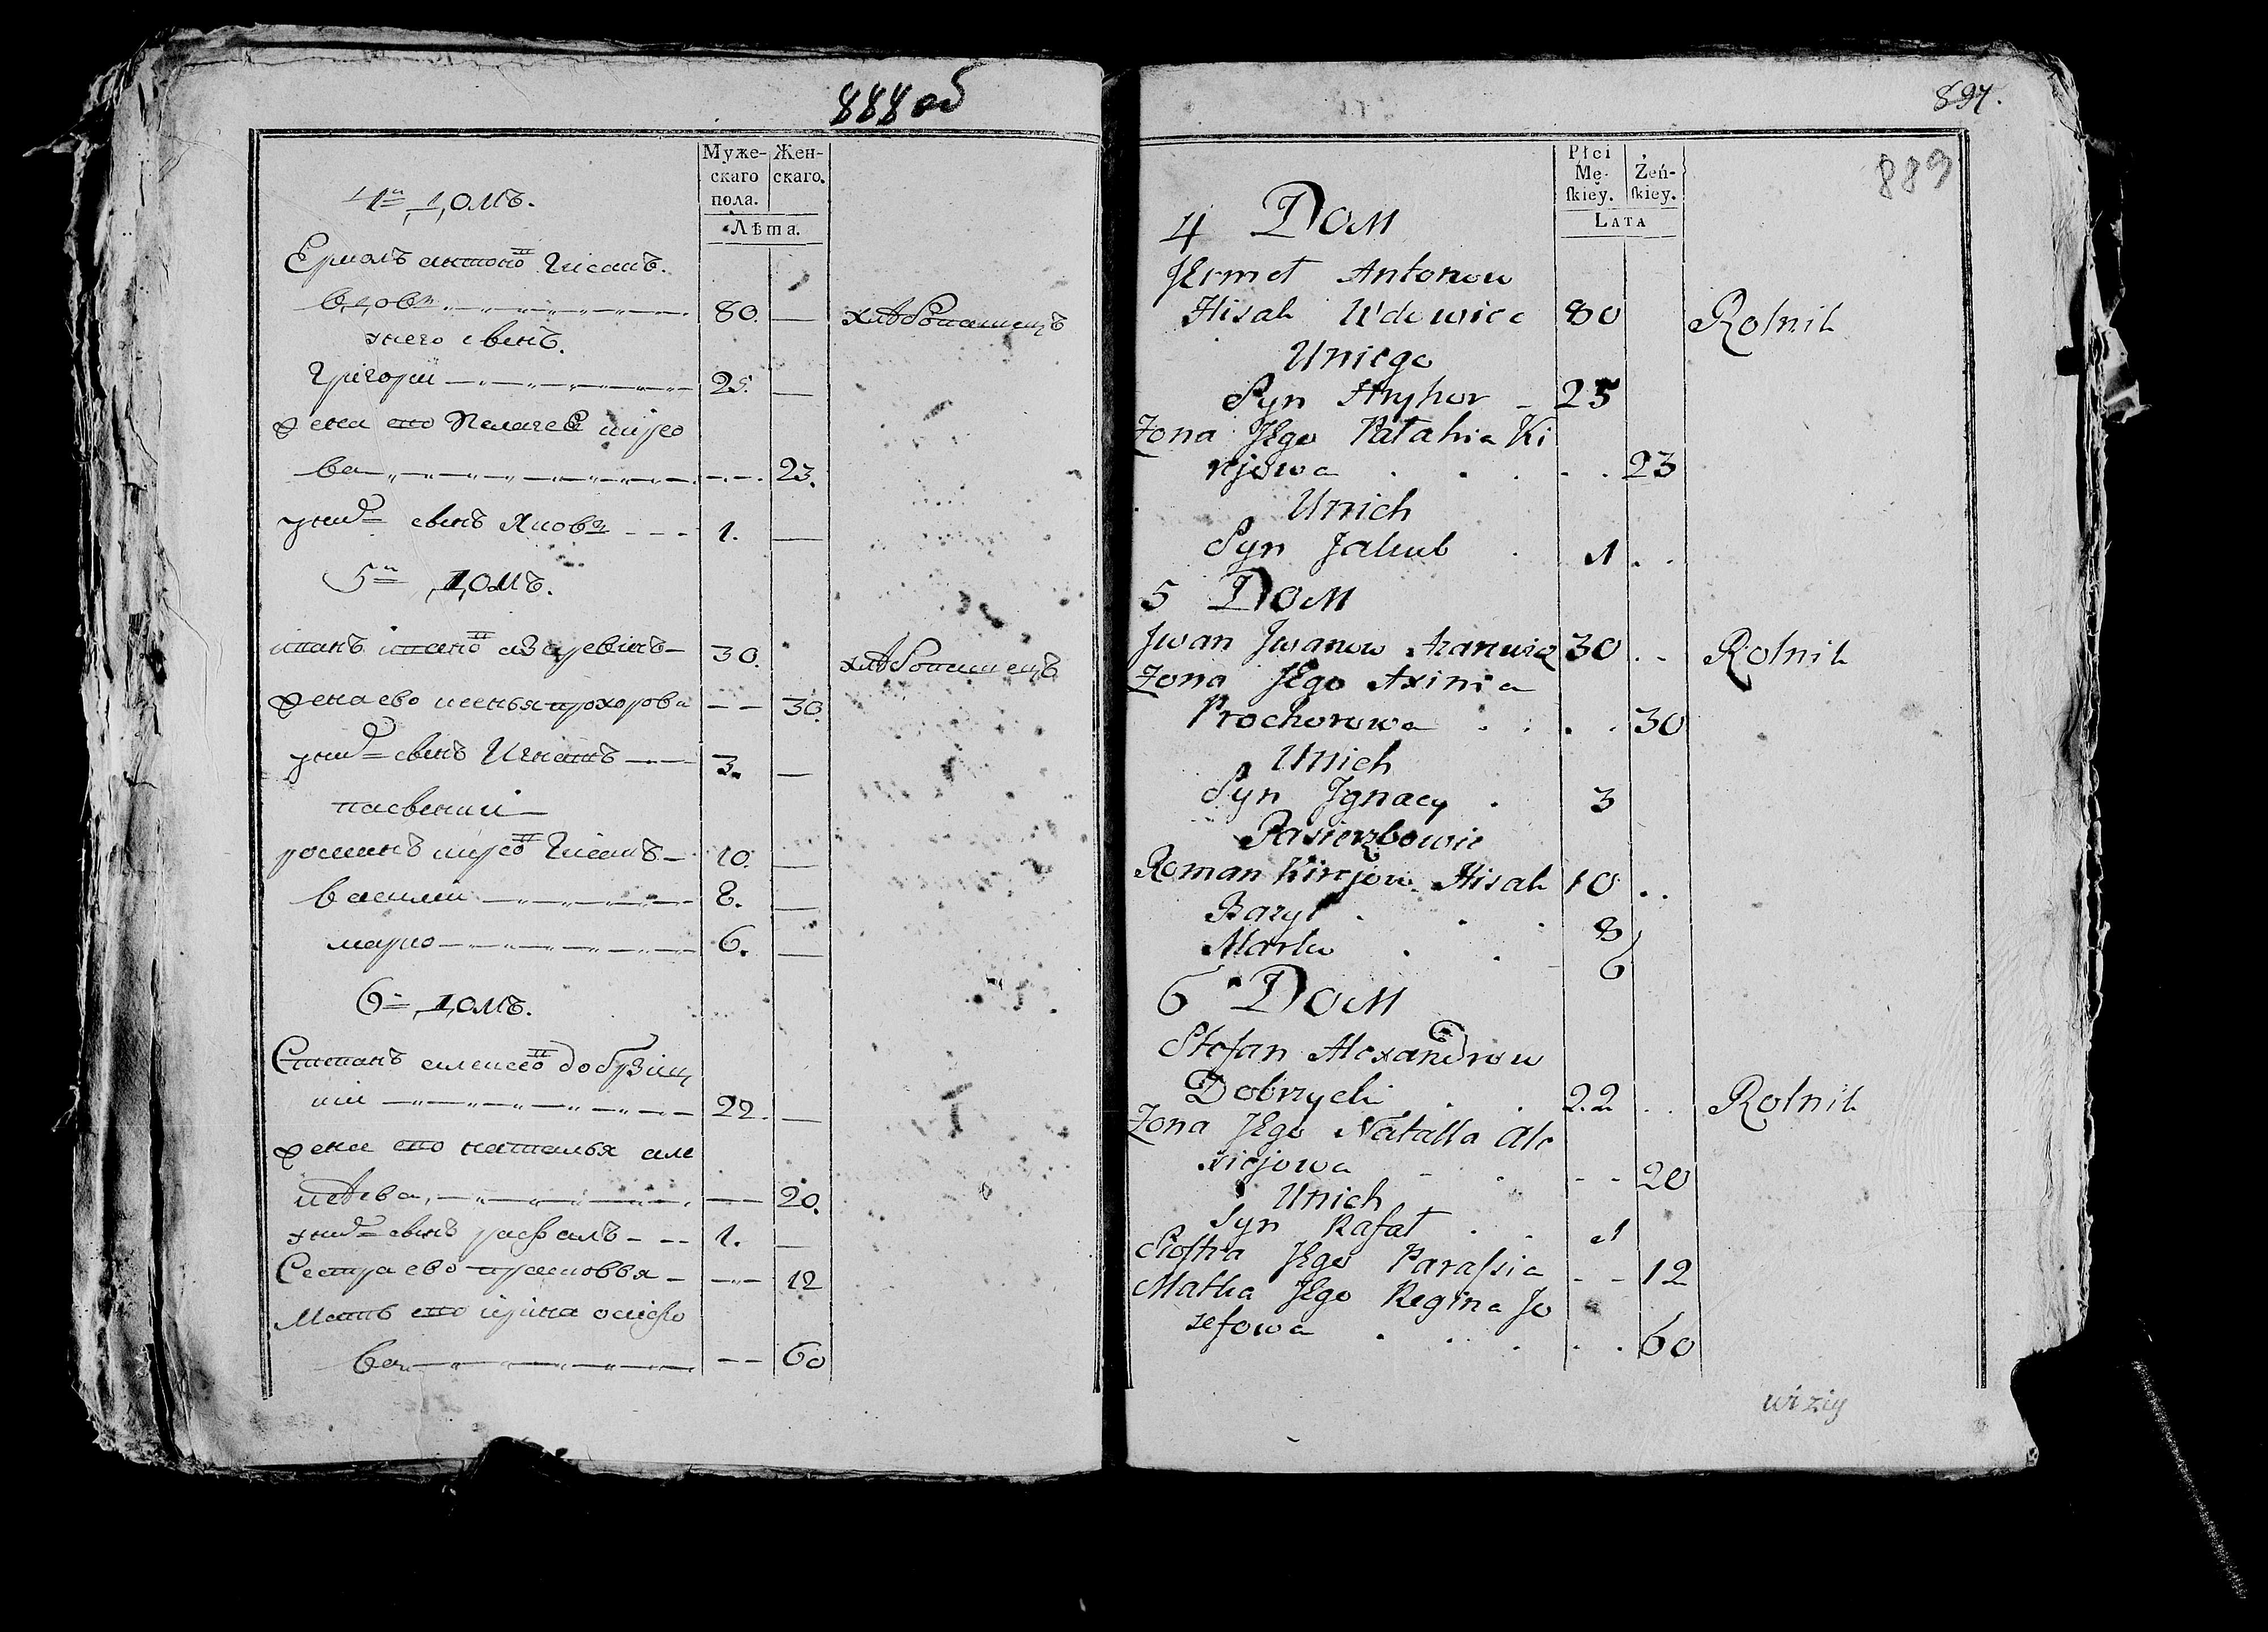 888 об
Муже- Жен-
скаго скаго.
пола.
Лѣта.
4й домъ.
Ермолъ антоно Гисакъ.
вдовъ 80. — хлѣбопашецъ
у него сынъ.
Григорій 25. —
жена его Пелагея кирео
ва 23.
у них сынъ Яковъ 1. —
5й домъ.
иванъ ивано азаревичъ 30. хлѣбопашецъ
жена ево ксенья прохорова 30.
у них сынъ Игнатъ 3. —
пасынки
романъ кирео Гисакъ 10. —
василии 8. —
марко 6. —
6й домъ.
Степанъ алексео добрзиц
кии 22. —
жена его наталья але
ксѣева 20.
у них сынъ рафалъ 1. —
Сестра ево прасковья 12
Мать его ирина осифо
ва 60
897.
889
Płci
Mę- Żeń-
ſkiey. ſkiey.
LATA
4 Dom
JErmoł Antonow
Hisak Wdowiec 80 Rolnik
Uniego
Syn Hryhor 25
Zona JEgo Pałahia Ki
rejowa 23
Unich
Syn Jakub 1
5 Dom
Jwan Jwanow Azarewicz 30 Rolnik
Zona JEgo Axinia
Prochorowa 30
Unich
Syn Jgnacy 3
Pasierzbowie
Roman Kirejow Hisak 10
Bazyl 8
Marko 6
6 Dom
Stefan Alexandrow
Dobrzycki 22 Rolnik
Zona JEgo Natalla Ale
xiejowa 20
Unich
Syn Rafał 1
Sioſtra JEgo Paraſsia 12
Matka JEgo Regina Jo
zefowa 60
wiziy